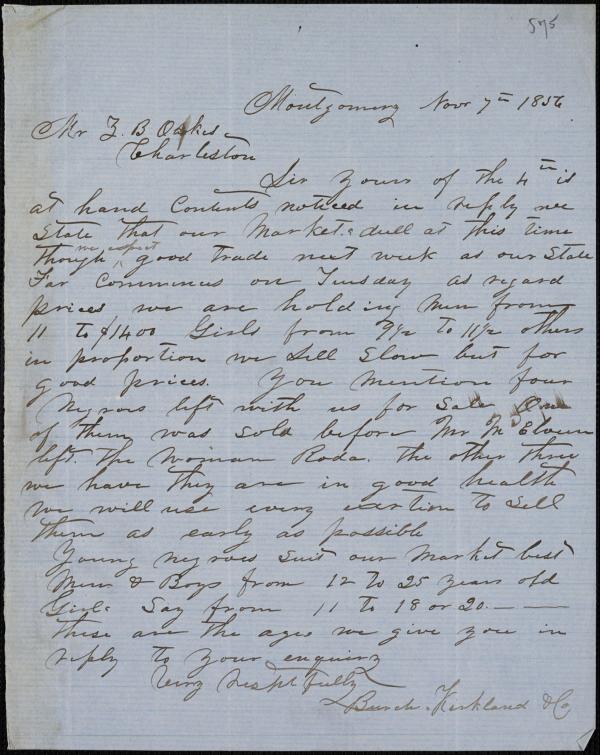 575
Montgomery Novr 7th 1856
Mr Z. B Oakes
Charleston
Sir Yours of the 4th is
at hand Contents noticed in reply we
State that our Market is dull at this time
though we expect good trade next week as our State
Far Commences on Tuesday as regard
prices we are holding Men from
11 to $1400 Girls from 9½ to 11½ others
in proportion we Sell Slow but for
good prices. You mention four
Negroes left with us for Sale One
of them was Sold before Mr Mc Elveen
left. The Woman Roda. the other three
we have they are in good health
we will use every exertion to Sell
them as early as possible
Young negroes Suit our Market best
Men & Boys from 12 to 25 years old
Girls Say from 11 to 18 or 20. — —
these are the ages we give you in
reply to your enquiry
Very respt fully
Burch. Kirkland & Co